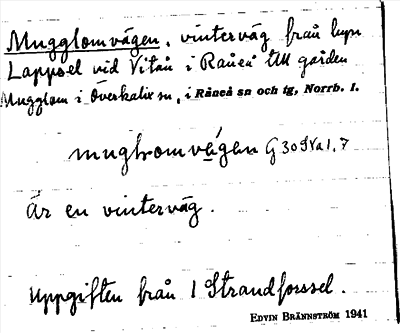 Mugglomvägen, vinterväg från byn
Lappsel vid Vitån i Råneå till gården
Mugglom i Överkalix sn, i Råneå sn och tg, Norrb. l.
G 30
Är en vinterväg.
Uppgiften från I Strandforssel.
EDVIN BRÄNNSTRÖM 1941